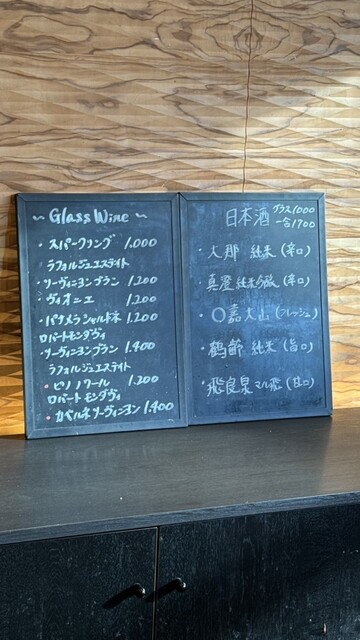 ~ Glass Wine ~
・スパークリング 1.000
ラフォルジュエステイト
・ソーヴィニヨンブラン 1.200
・ヴィオニエ 1.200
・パケメラ シャルドネ 1.200
ロバートモンダヴィ
・ソーヴィニヨンブラン 1.400
ラフォルジュエステイト
・ピノノワール 1.200
ロバートモンダヴィ
・カベルネソーヴィニヨン 1.400
日本酒 グラス1000
一合1700
・大那 純米 (辛口)
・真澄 純米吟醸 (辛口)
・〇嘉大山 (フレッシュ)
・鶴齢 純米 (旨口)
・飛良泉 マル飛 (甘口)